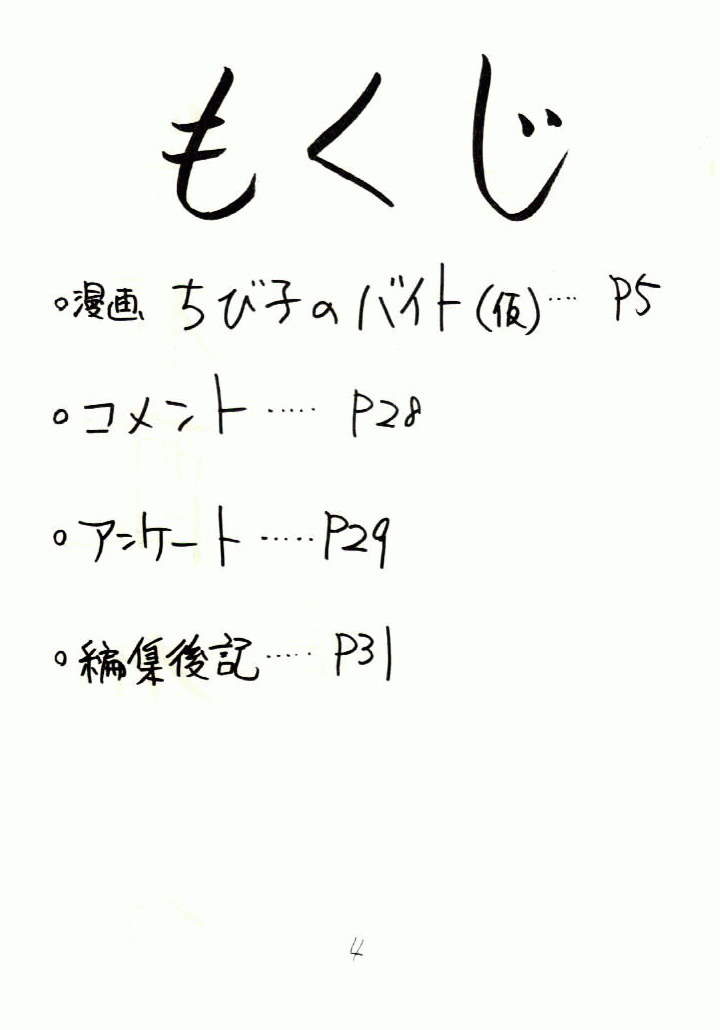 もくじ
○漫画 ちび子のバイト(仮)‥‥ P5
○コメント ‥‥‥ P28
○アンケート ‥‥‥P29
○編集後記‥‥‥ P31
4